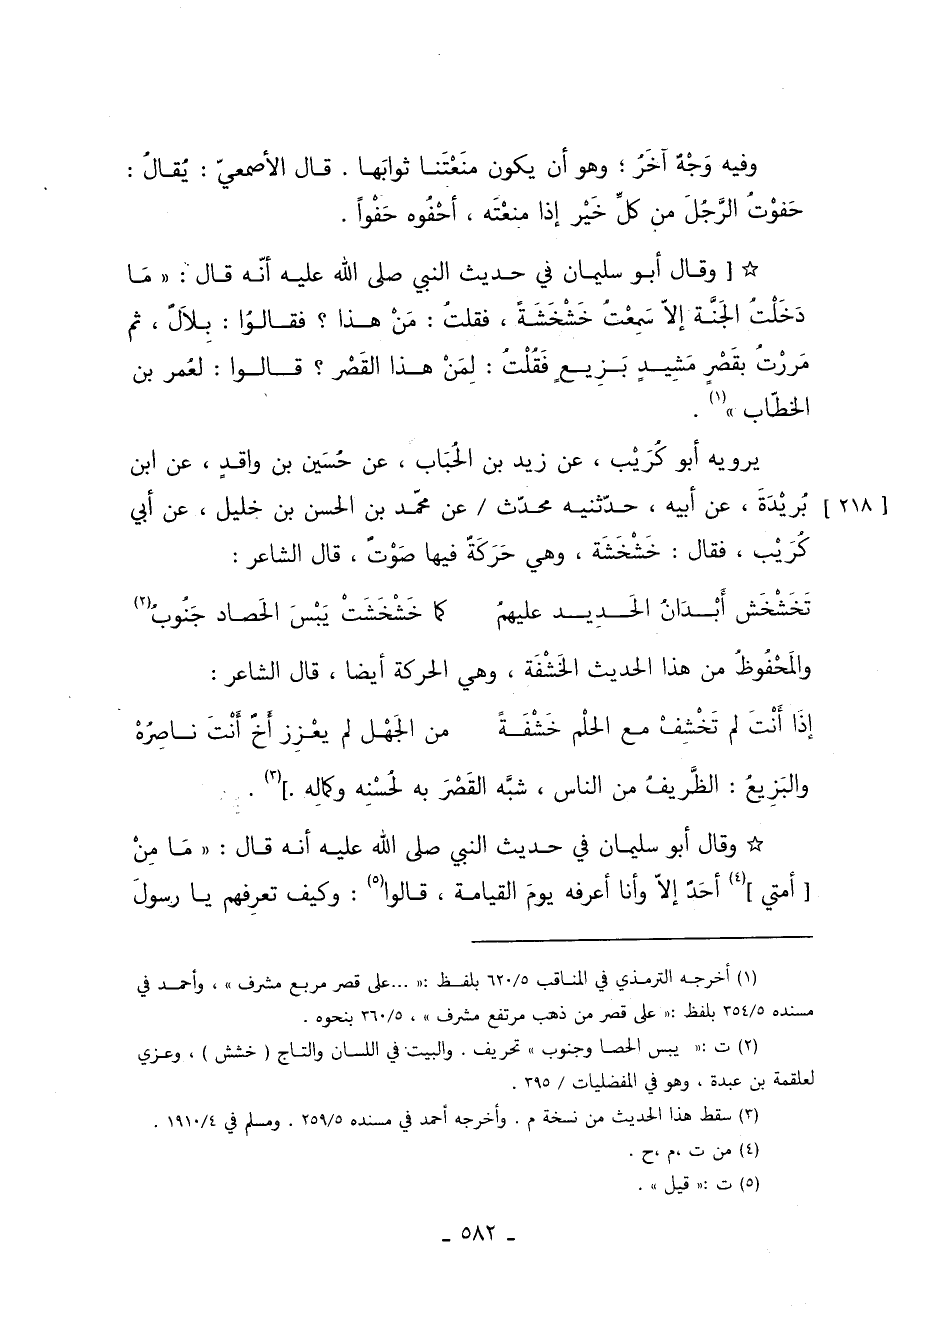 وفيه وَجْهٌ آخَرُ ؛ وهو أن يكون منَعْتَنا ثوابَها . قال الأصمعيّ : يُقالُ :
حَفوْتُ الرَّجُلَ من كلِّ خَيْر إذا منعْتَه ، أحْفُوه حَفْواً .
☆ [ وقال أبو سليمان في حديث النبي صلى الله عليه أنّه قال : « مَا
دَخَلْتُ الجَنَّة إلاّ سَمِعْتُ خَشْخَشَةً ، فقلتُ : مَنْ هذا ؟ فقالوُا : بلالٌ ، ثم
مَررْتُ بقَصْرٍ مَشِيدٍ بَزيعٍ فَقُلْتُ : لمَنْ هذا القَصْر ؟ قالوا : لعُمر بن
الخطّاب »(١) .
يرويه أبو كُرَيْب ، عن زيد بن الحُبَاب ، عن حُسَين بن واقدٍ ، عن ابن
[ ٢١٨ ] بُرَيْدَةَ ، عن أبيه ، حدّثنيه محدّث / عن محمّد بن الحسن بن خليل ، عن أبي
كُرَيْب ، فقال : خَشْخَشَة ، وهي حَرَكَةٌ فيها صَوْتٌ ، قال الشاعر :
تَخَشْخَش أَبْدَانُ الحَديد عليهمُ كما خَشْخَشَتْ يَبْسَ الحَصاد جَنُوبُ(٢)
والمَحْفُوظُ من هذا الحديث الخَشْفَة ، وهي الحركة أيضا ، قال الشاعر :
إذَا أَنْتَ لم تَخْشِفْ مع الحلْم خَشْفَةً من الجَهْل لم يعْزز أَخٌ أَنْتَ ناصرُهْ
والبَزيعُ : الظَّريفُ من الناس ، شبَّه القَصْرَ به لحُسْنه وكماله .](٣) .
☆ وقال أبو سليمان في حديث النبي صلى الله عليه أنه قال : « مَا منْ
[ أمتي ](٤) أحَدٌ إلاّ وأنا أعرفه يومَ القيامة ، قالوا(٥) : وكيف تعرفهم يا رسولَ
(١) أخرجه الترمذي في المناقب ٦٢٠/٥ بلفظ :« ...على قصر مربع مشرف » ، وأحمد في
مسنده ٣٥٤/٥ بلفظ :« على قصر من ذهب مرتفع مشرف » ، ٣٦٠/٥ بنحوه .
(٢) ت :« يبس الحصا وجنوب » تحريف . والبيت في اللسان والتاج ( خشش ) ، وعزي
لعلقمة بن عبدة ، وهو في المفضليات / ٣٩٥ .
(٣) سقط هذا الحديث من نسخة م . وأخرجه أحمد في مسنده ٢٥٩/٥ . ومسلم في ١٩١٠/٤ .
(٤) من ت ،م ،ح .
(٥) ت :« قيل » .
ـ ٥٨٢ ـ